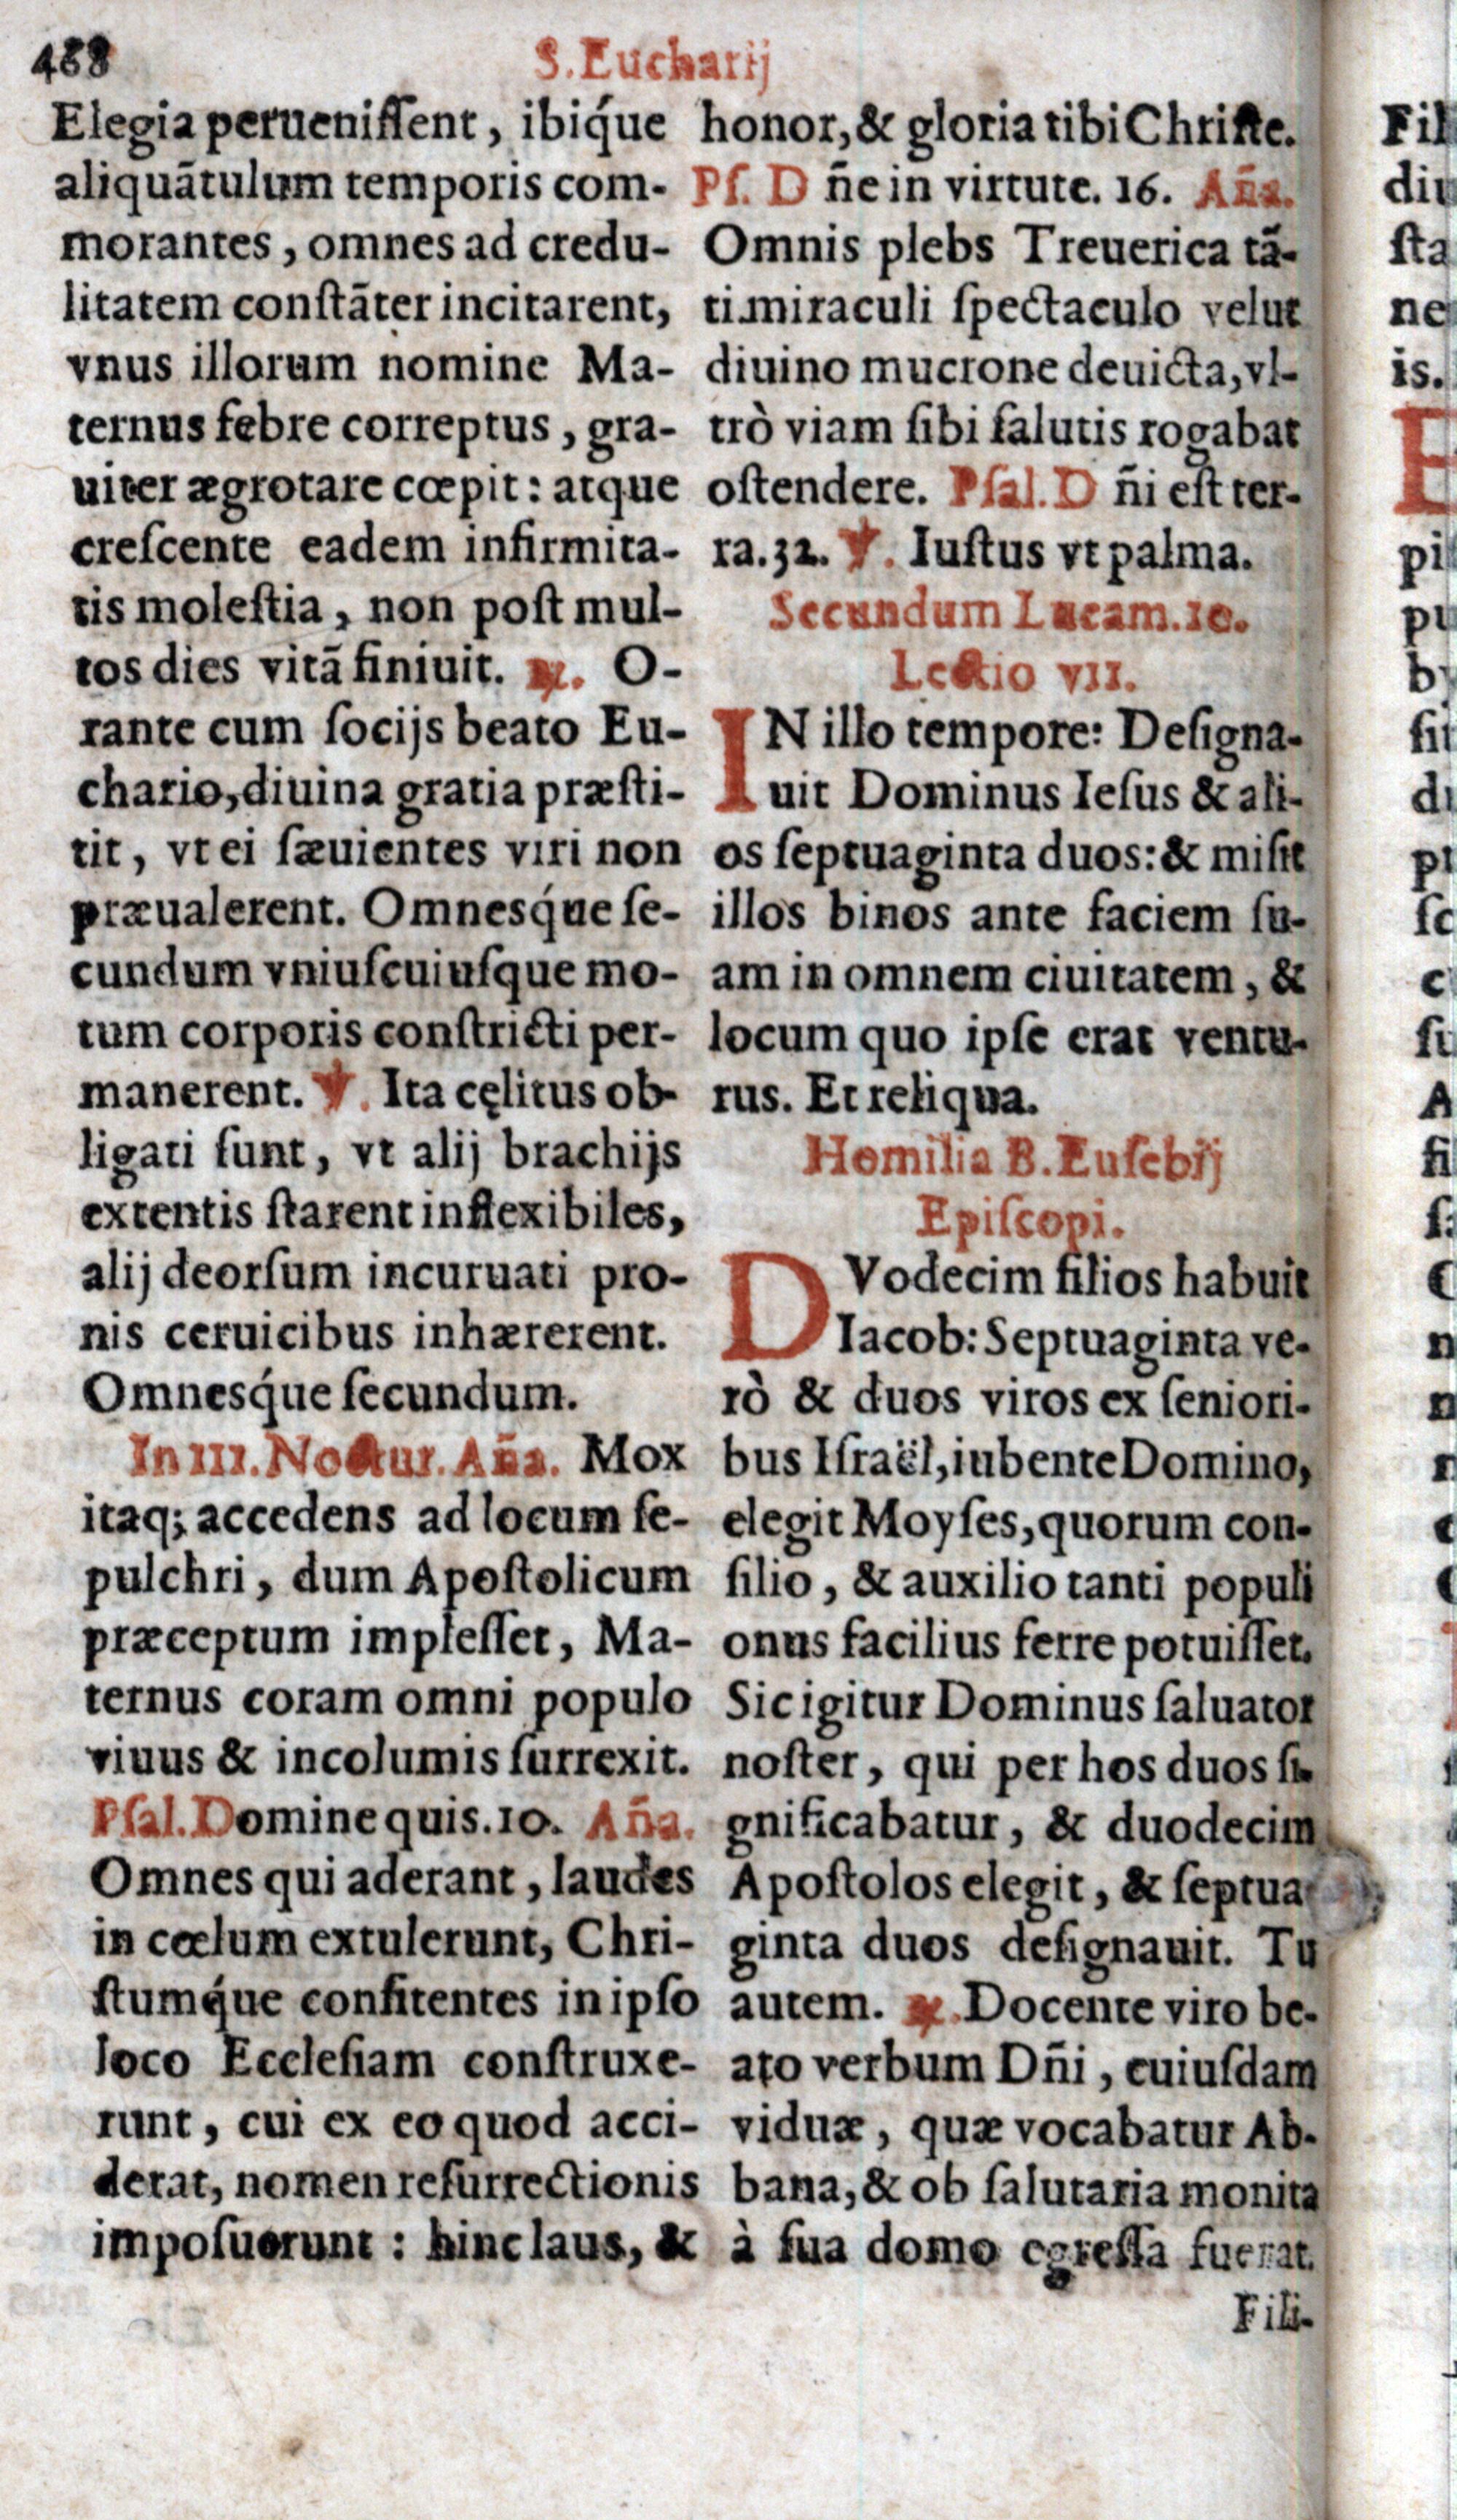 488
S. Eucharij
Elegia perueniſſent, ibiq́ue
aliquãtulum temporis com-
morantes, omnes ad credu-
litatem conſtãter incitarent,
vnus illorum nomine Ma-
ternus febre correptus, gra-
uiter ægrotare cœpit: atque
creſcente eadem infirmita-
tis moleſtia, non poſt mul-
tos dies vitã finiuit. ℞. O-
rante cum ſocijs beato Eu-
chario, diuina gratia præſti-
tit, vt ei ſæuientes viri non
præualerent. Omnesq́ue ſe-
cundum vniuſcuiuſque mo-
tum corporis conſtricti per-
manerent. ℣. Ita cęlitus ob-
ligati ſunt, vt alij brachijs
extentis ſtarent inflexibiles,
alij deorſum incuruati pro-
nis ceruicibus inhærerent.
Omnesq́ue ſecundum.
In III. Noctur. Aña. Mox
itaq; accedens ad locum ſe-
pulchri, dum Apoſtolicum
præceptum impleſſet, Ma-
ternus coram omni populo
viuus & incolumis ſurrexit.
Pſal. Domine quis. 10. Aña.
Omnes qui aderant, laudes
in cœlum extulerunt, Chri-
ſtumq́ue confitentes in ipſo
loco Eccleſiam conſtruxe-
runt, cui ex eo quod acci-
derat, nomen reſurrectionis
impoſuerunt: hinc laus, &
honor, & gloria tibi Chriſte.
Pſ. D ñe in virtute. 16. Aña.
Omnis plebs Treuerica tã-
ti miraculi ſpectaculo velut
diuino mucrone deuicta, vl-
trò viam ſibi ſalutis rogabat
oſtendere. Pſal. D ñi eſt ter-
ra. 32. ℣. Iuſtus vt palma.
Secundum Lucam. 10.
Lectio VII.
IN illo tempore: Deſigna-
uit Dominus Ieſus & ali-
os ſeptuaginta duos: & miſit
illos binos ante faciem ſu-
am in omnem ciuitatem, &
locum quo ipſe erat ventu-
rus. Et reliqua.
Homilia B. Euſebij
Epiſcopi.
DVodecim filios habuit
Iacob: Septuaginta ve-
rò & duos viros ex ſeniori-
bus Iſraël, iubente Domino,
elegit Moyſes, quorum con-
ſilio, & auxilio tanti populi
onus facilius ferre potuiſſet.
Sic igitur Dominus ſaluator
noſter, qui per hos duos ſi-
gnificabatur, & duodecim
Apoſtolos elegit, & ſeptua-
ginta duos deſignauit. Tu
autem. ℞. Docente viro be-
ato verbum Dñi, cuiuſdam
viduæ, quæ vocabatur Ab-
bana, & ob ſalutaria monita
à ſua domo egreſſa fuerat.
Fili-